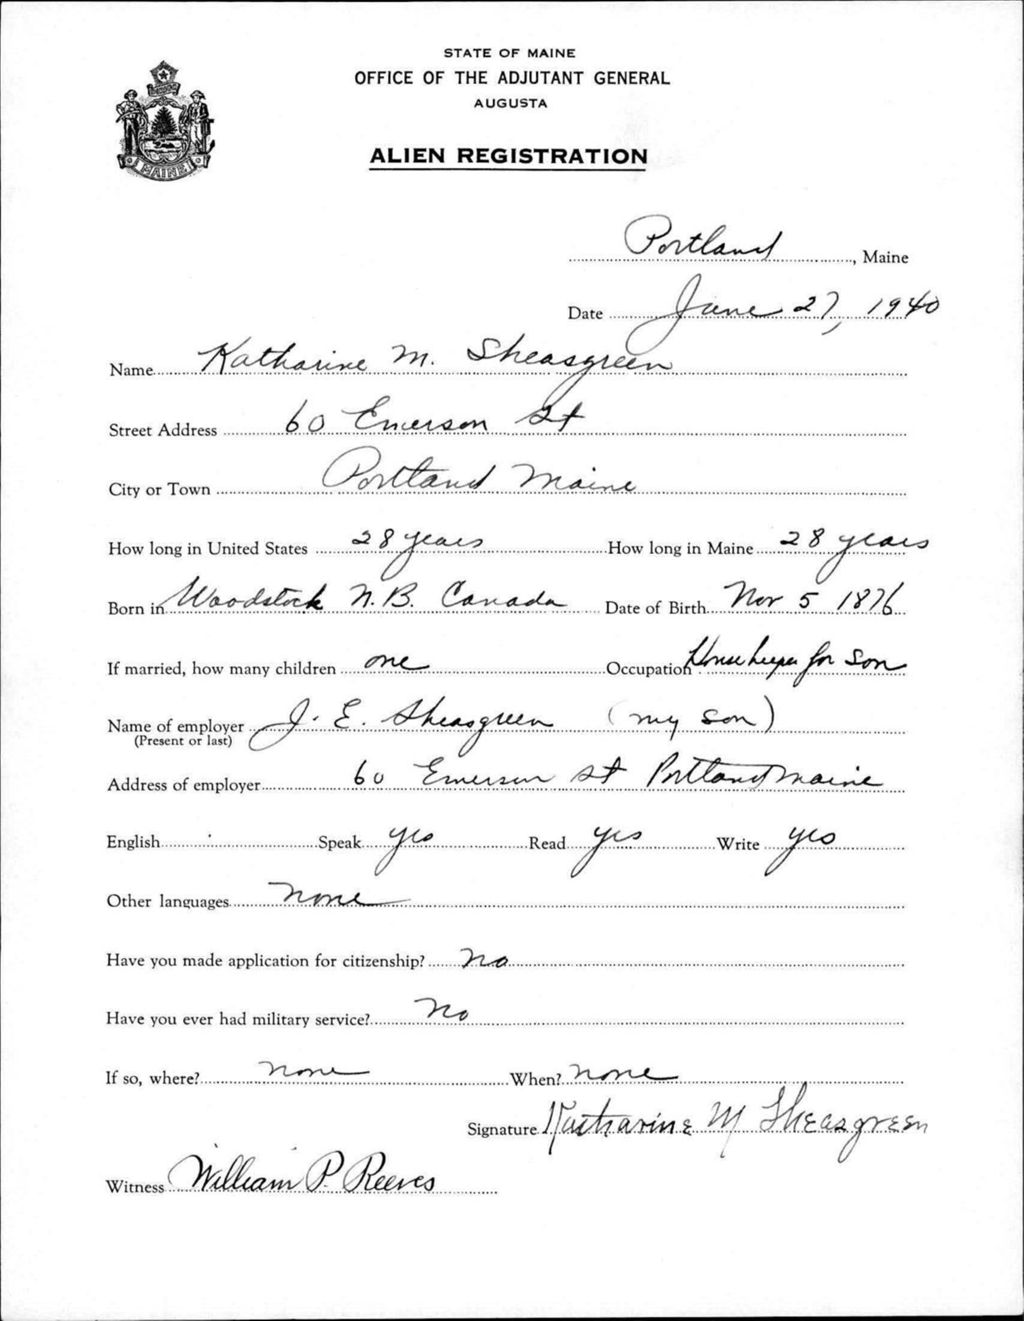 STATE OF MAINE
OFFICE OF THE ADJUTANT GENERAL
AUGUSTA
ALIEN REGISTRATION
MAINE
Portland, Maine
Date June 27, 1940
Name Katharine M. Sheasgreen
Street Address 60 Emerson St
City or Town Portland Maine
How long in United States 28 years How long in Maine 28 years
Born in Woodstock N.B. Canada Date of Birth Nov 5 1876
If married, how many children one Occupation Housekeeper for son
Name of employer J. E. Sheasgreen (my son)
(Present or last)
Address of employer 60 Emerson St Portland Maine
English Speak yes Read yes Write yes
Other languages none
Have you made application for citizenship? no
Have you ever had military service? no
If so, where? none When? none
Signature Katharine M Sheasgreen
Witness William P. Reeves